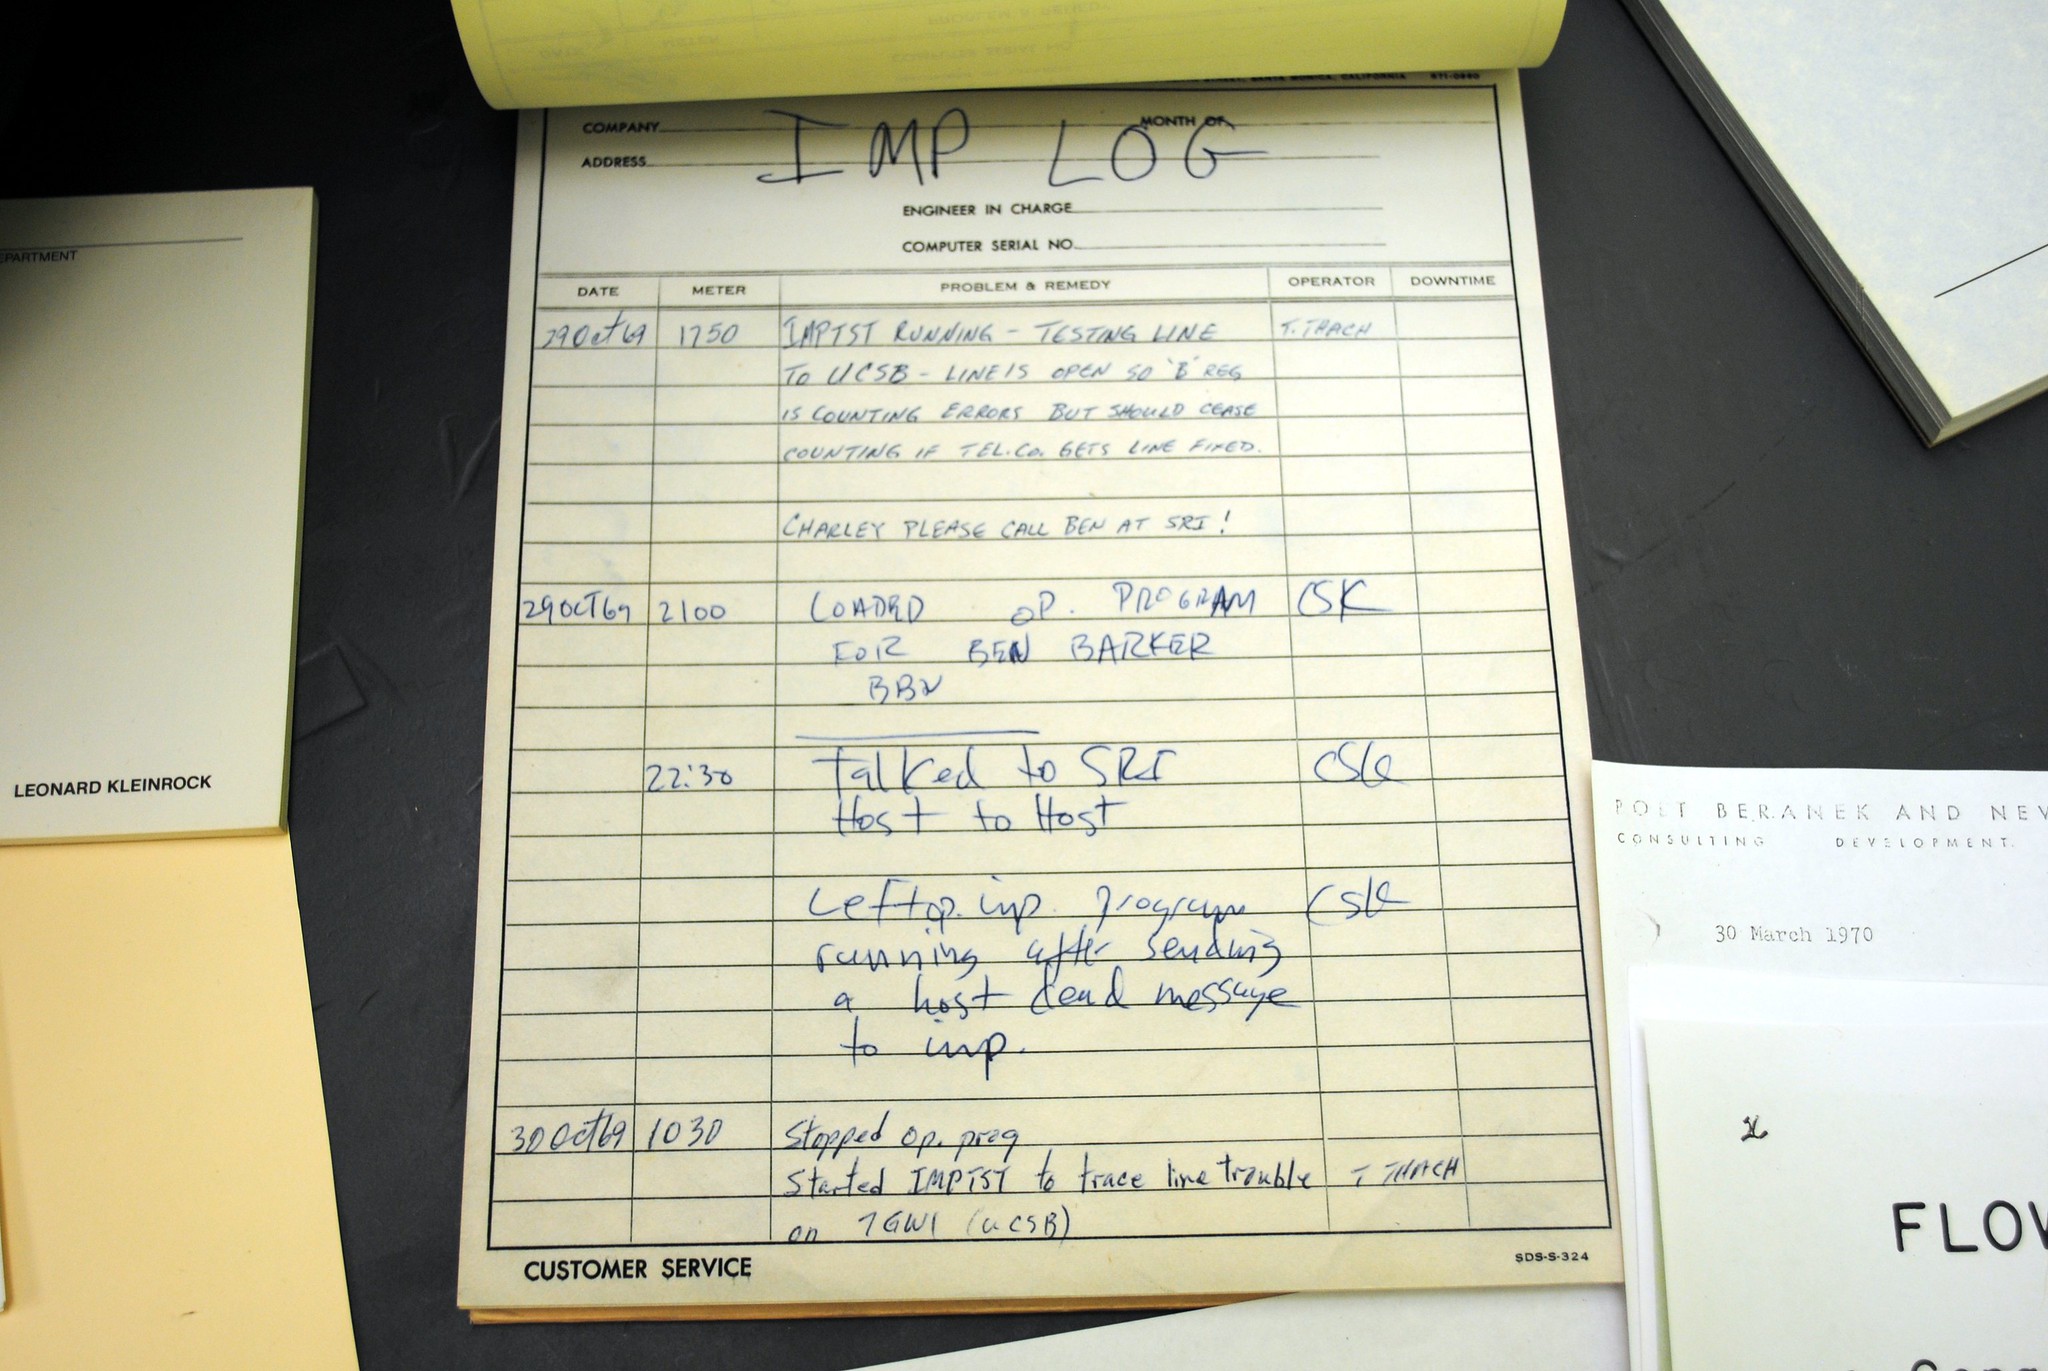 SANTA MONICA, CALIFORNIA 871-0960
COMPANY MONTH OF
ADDRESS
IMP LOG
ENGINEER IN CHARGE
COMPUTER SERIAL NO.
DATE METER PROBLEM & REMEDY OPERATOR DOWNTIME
29Oct69 1750 IMPTST RUNNING - TESTING LINE T. THACH
TO UCSB - LINE IS OPEN SO 'B' REG
IS COUNTING ERRORS BUT SHOULD CEASE
COUNTING IF TEL. CO. GETS LINE FIXED.
CHARLEY PLEASE CALL BEN AT SRI!
29OCT69 2100 LOADED OP. PROGRAM CSK
FOR BEN BARKER
BBN
22:30 Talked to SRI CSK
Host to Host
Left op. imp. program CSK
running after sending
a host dead message
to imp.
30Oct69 1030 Stopped op. prog
Started IMPTST to trace line trouble T THACH
on 7GW1 (UCSB)
CUSTOMER SERVICE SDS-S-324
EPARTMENT
LEONARD KLEINROCK
BOLT BERANEK AND NEW
CONSULTING DEVELOPMENT
30 March 1970
FLOW